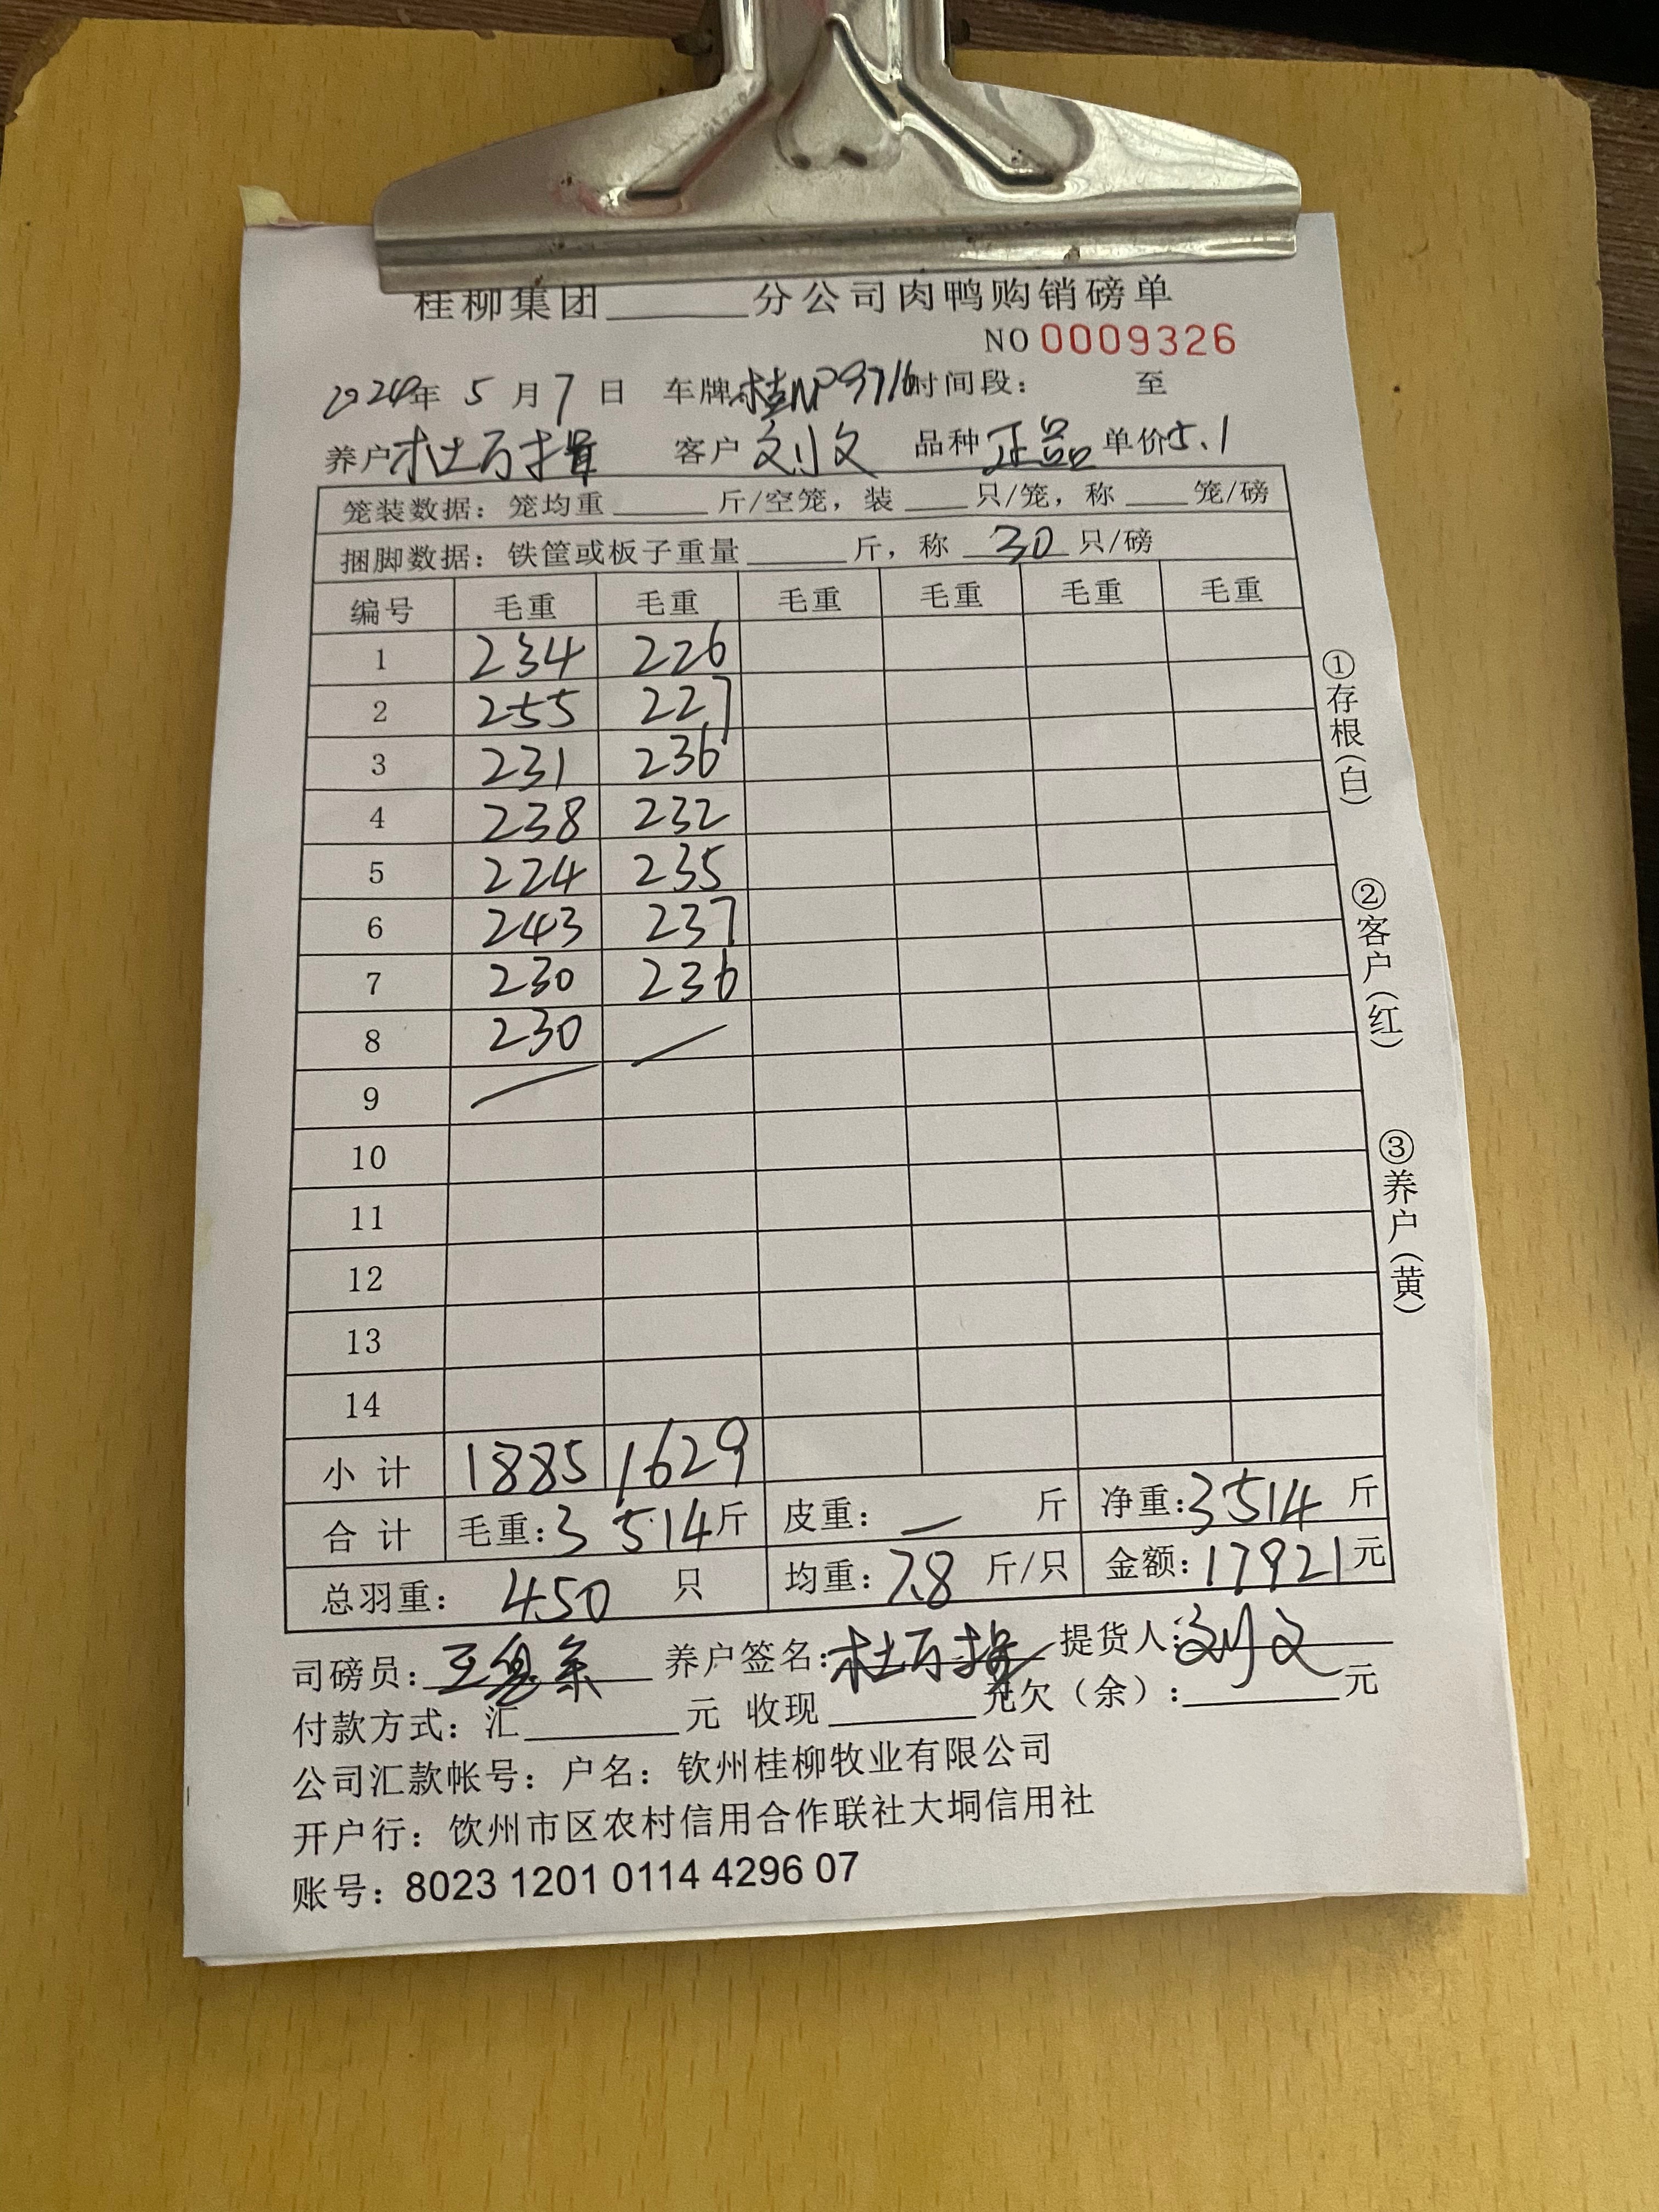 桂柳集团______分公司肉鸭购销磅单
NO 0009326
2024年 5 月 7 日 车牌桂NP9716时间段: 至
养户 杜万 客户 刘文 品种 正品 单价5.1
笼装数据: 笼均重______斤/空笼, 装____只/笼, 称____笼/磅
捆脚数据: 铁筐或板子重量______斤, 称 30 只/磅
编号 毛重 毛重 毛重 毛重 毛重 毛重
1 234 226
2 255 227
3 231 236
4 238 232
5 224 235
6 243 237
7 230 236
8 230 /
9 /
10
11
12
13
14
小 计 1885 1629
合 计 毛重: 3514斤 皮重: — 斤 净重: 3514 斤
总羽重: 450 只 均重: 7.8 斤/只 金额: 17921元
司磅员: 养户签名: 杜万 提货人: 刘文
付款方式: 汇______元 收现______元欠（余）:______元
公司汇款帐号: 户名: 钦州桂柳牧业有限公司
开户行: 钦州市区农村信用合作联社大垌信用社
账号: 8023 1201 0114 4296 07
①存根(白)
②客户(红)
③养户(黄)